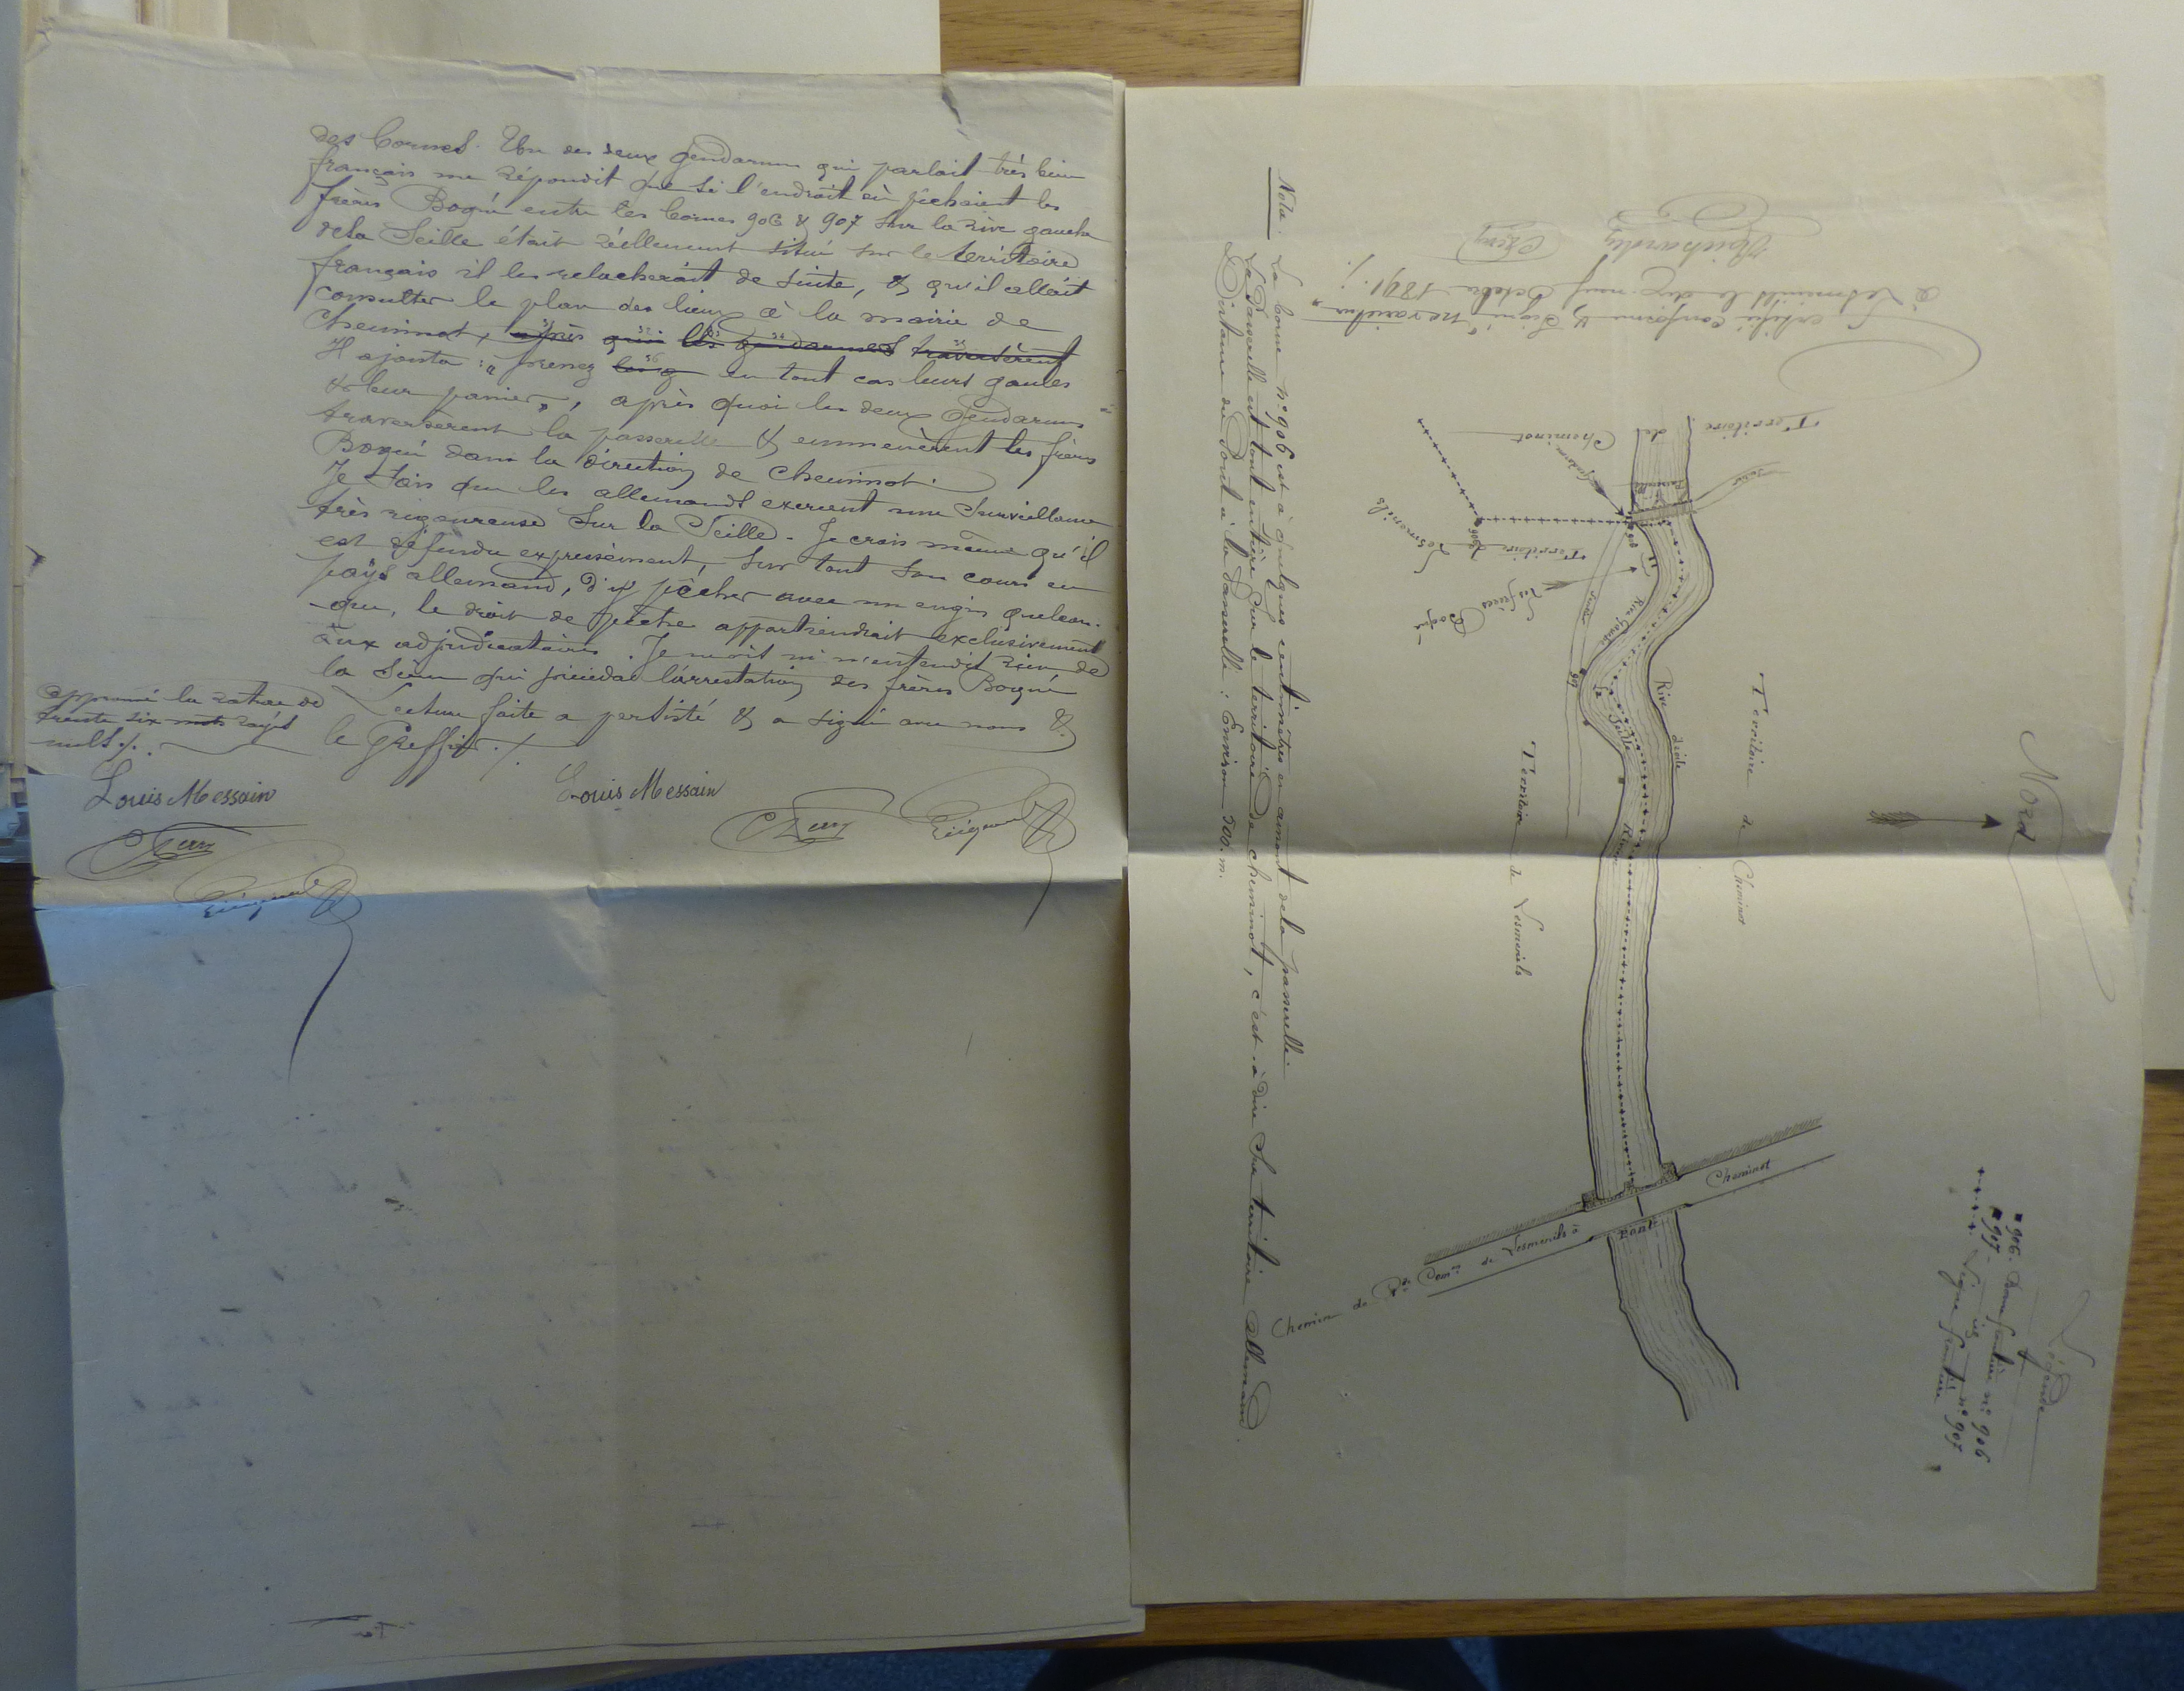 des bornes. Un des deux gendarmes qui parlait très bien
français me répondit que si l'endroit où pêchaient les
frères Bogué entre les bornes 906 & 907 sur la rive gauche
de la Seille était réellement situé sur le territoire
français il les relacherait de suite, & qu'il allait
consulter le plan des lieux à la mairie de
Cheminot, après quoi les gendarmes traversèrent
Il ajouta : "prenez en tout cas leurs gaules
& leur panier", après quoi les deux gendarmes
traversèrent la passerelle & emmenèrent les frères
Bogué dans la direction de Cheminot.
Je sais que les allemands exercent une surveillance
très rigoureuse sur la Seille. Je crois même qu'il
est défendu expressément, sur tout son cours en
pays allemand, d'y pêcher avec un engin quelcon-
-que, le droit de pêche appartiendrait exclusivement
aux adjudicataires. Je ni n'entendis rien de
la scène qui précéda l'arrestation des frères Bogué
Lecture faite a persisté & a signé avec nous &
le Greffier ./.
approuvé la rature de
trente six mots rayés
nuls ./.
Louis Messain
Louis Messain
Nota. La borne n° 906 est à quelques centimètres en amont de la passerelle.
La Passerelle est tout entière sur le territoire de Cheminot, c'est à dire sur territoire allemand.
Distance du Pont à la passerelle : Environ 500 m.
Certifié conforme & signé ne varietur
à Lesménils le dix-neuf octobre 1891 ./.
Territoire de Cheminot
Gendarmes
Passerelle
Sentier
906
906
Territoire de Lesménils
Les frères Bogué
Sentier
Rive Gauche
907
La Seille
Rive droite
Rivière
Territoire de Cheminot
Territoire de Lesménils
Nord
Pont
Chemin de Gde Comon de Lesménils à Cheminot
Légende
906. Borne frontière n° 906
907. n° 907
Ligne frontière